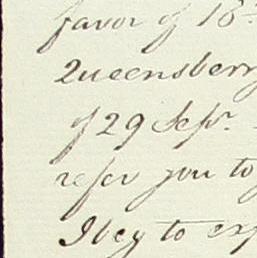 favor of 18
Queensberry
of 29 Sepr.
refer you to
I beg to exp